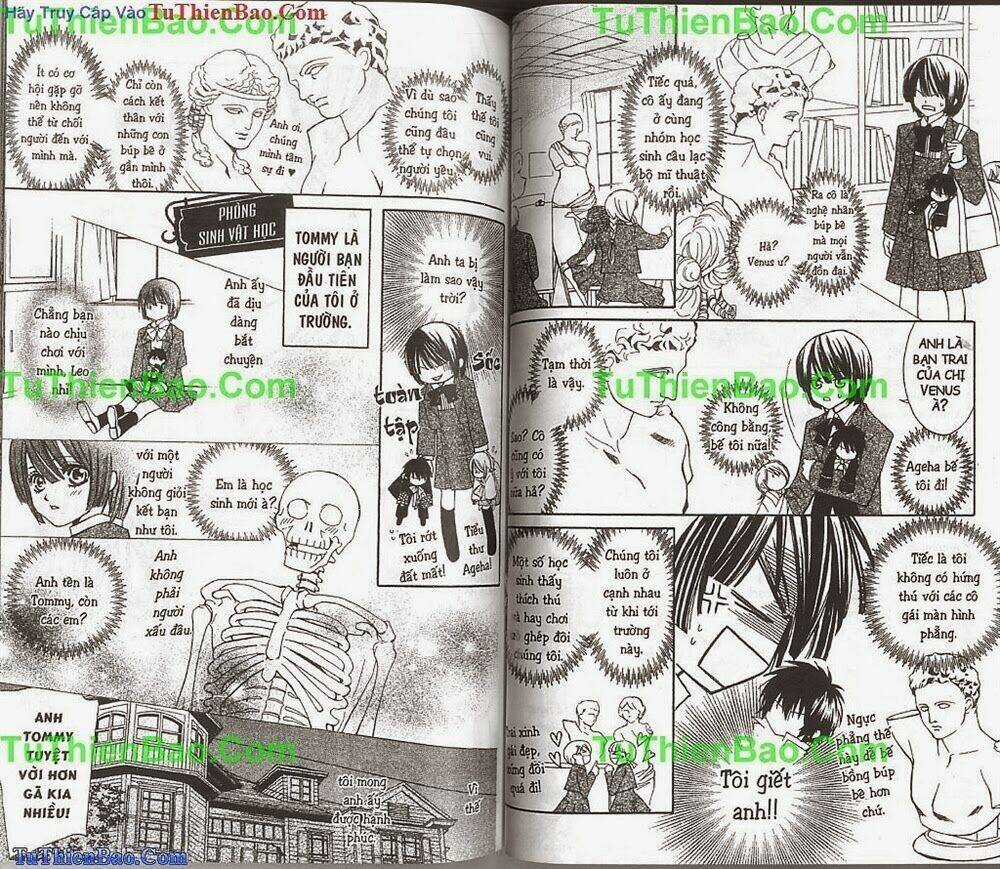 Hãy Truy Cập Vào TuThienBao.Com
TuThienBao.Com
TuThienBao.Com
Ít có cơ
hội gặp gỡ
nên không
thể từ chối
người đến với
mình mà.
Chỉ còn
cách kết
thân với
những con
búp bê ở
gần mình
thôi.
Anh ơi,
chúng
mình tâm
sự đi ♥
Vì dù sao
chúng tôi
cũng đâu
thể tự chọn
người yêu.
Thấy
thế tôi
cũng
vui.
PHÒNG
SINH VẬT HỌC
TOMMY LÀ
NGƯỜI BẠN
ĐẦU TIÊN
CỦA TÔI Ở
TRƯỜNG.
Anh ấy
đã dịu
dàng
bắt
chuyện
Chẳng bạn
nào chịu
chơi với
mình, Leo
nhỉ?
TuThienBao.Com
Anh ta bị
làm sao vậy
trời?
Sức
toàn
tập
Tôi rớt
xuống
đất mất!
Tiểu
thư
Ageha!
với một
người
không giỏi
kết bạn
như tôi.
Em là học
sinh mới à?
Anh
không
phải
người
xấu đâu.
Anh tên là
Tommy, còn
các em?
TuThienBao.Com
ANH
TOMMY
TUYỆT
VỜI HƠN
GÃ KIA
NHIỀU!
tôi mong
anh ấy
được hạnh
phúc.
Vì
thế
TuThienBao.Com
Tiếc quá,
cô ấy đang
ở cùng
nhóm học
sinh câu lạc
bộ mĩ thuật
rồi.
Hả?
Venus ư?
Ra cô là
nghệ nhân
búp bê
mà mọi
người vẫn
đồn đại.
ANH LÀ
BẠN TRAI
CỦA CHỊ
VENUS
À?
Tạm thời
là vậy.
TuThienBao.Com
Không
công bằng
bế tôi nữa!
Ageha bế
tôi đi!
Sao? Cô
cũng có
ý với tôi
nữa hả?
Một số học
sinh thấy
thích thú
và hay chơi
trò ghép đôi
chúng tôi.
Chúng tôi
luôn ở
cạnh nhau
từ khi tới
trường
này.
Tiếc là tôi
không có hứng
thú với các cô
gái màn hình
phẳng.
TuThienBao.Com
Trai xinh
gái đẹp,
xứng đôi
quá đi!
Tôi giết
anh!!
Ngực
phẳng thế
này dễ bế
bồng búp
bê hơn
chứ.